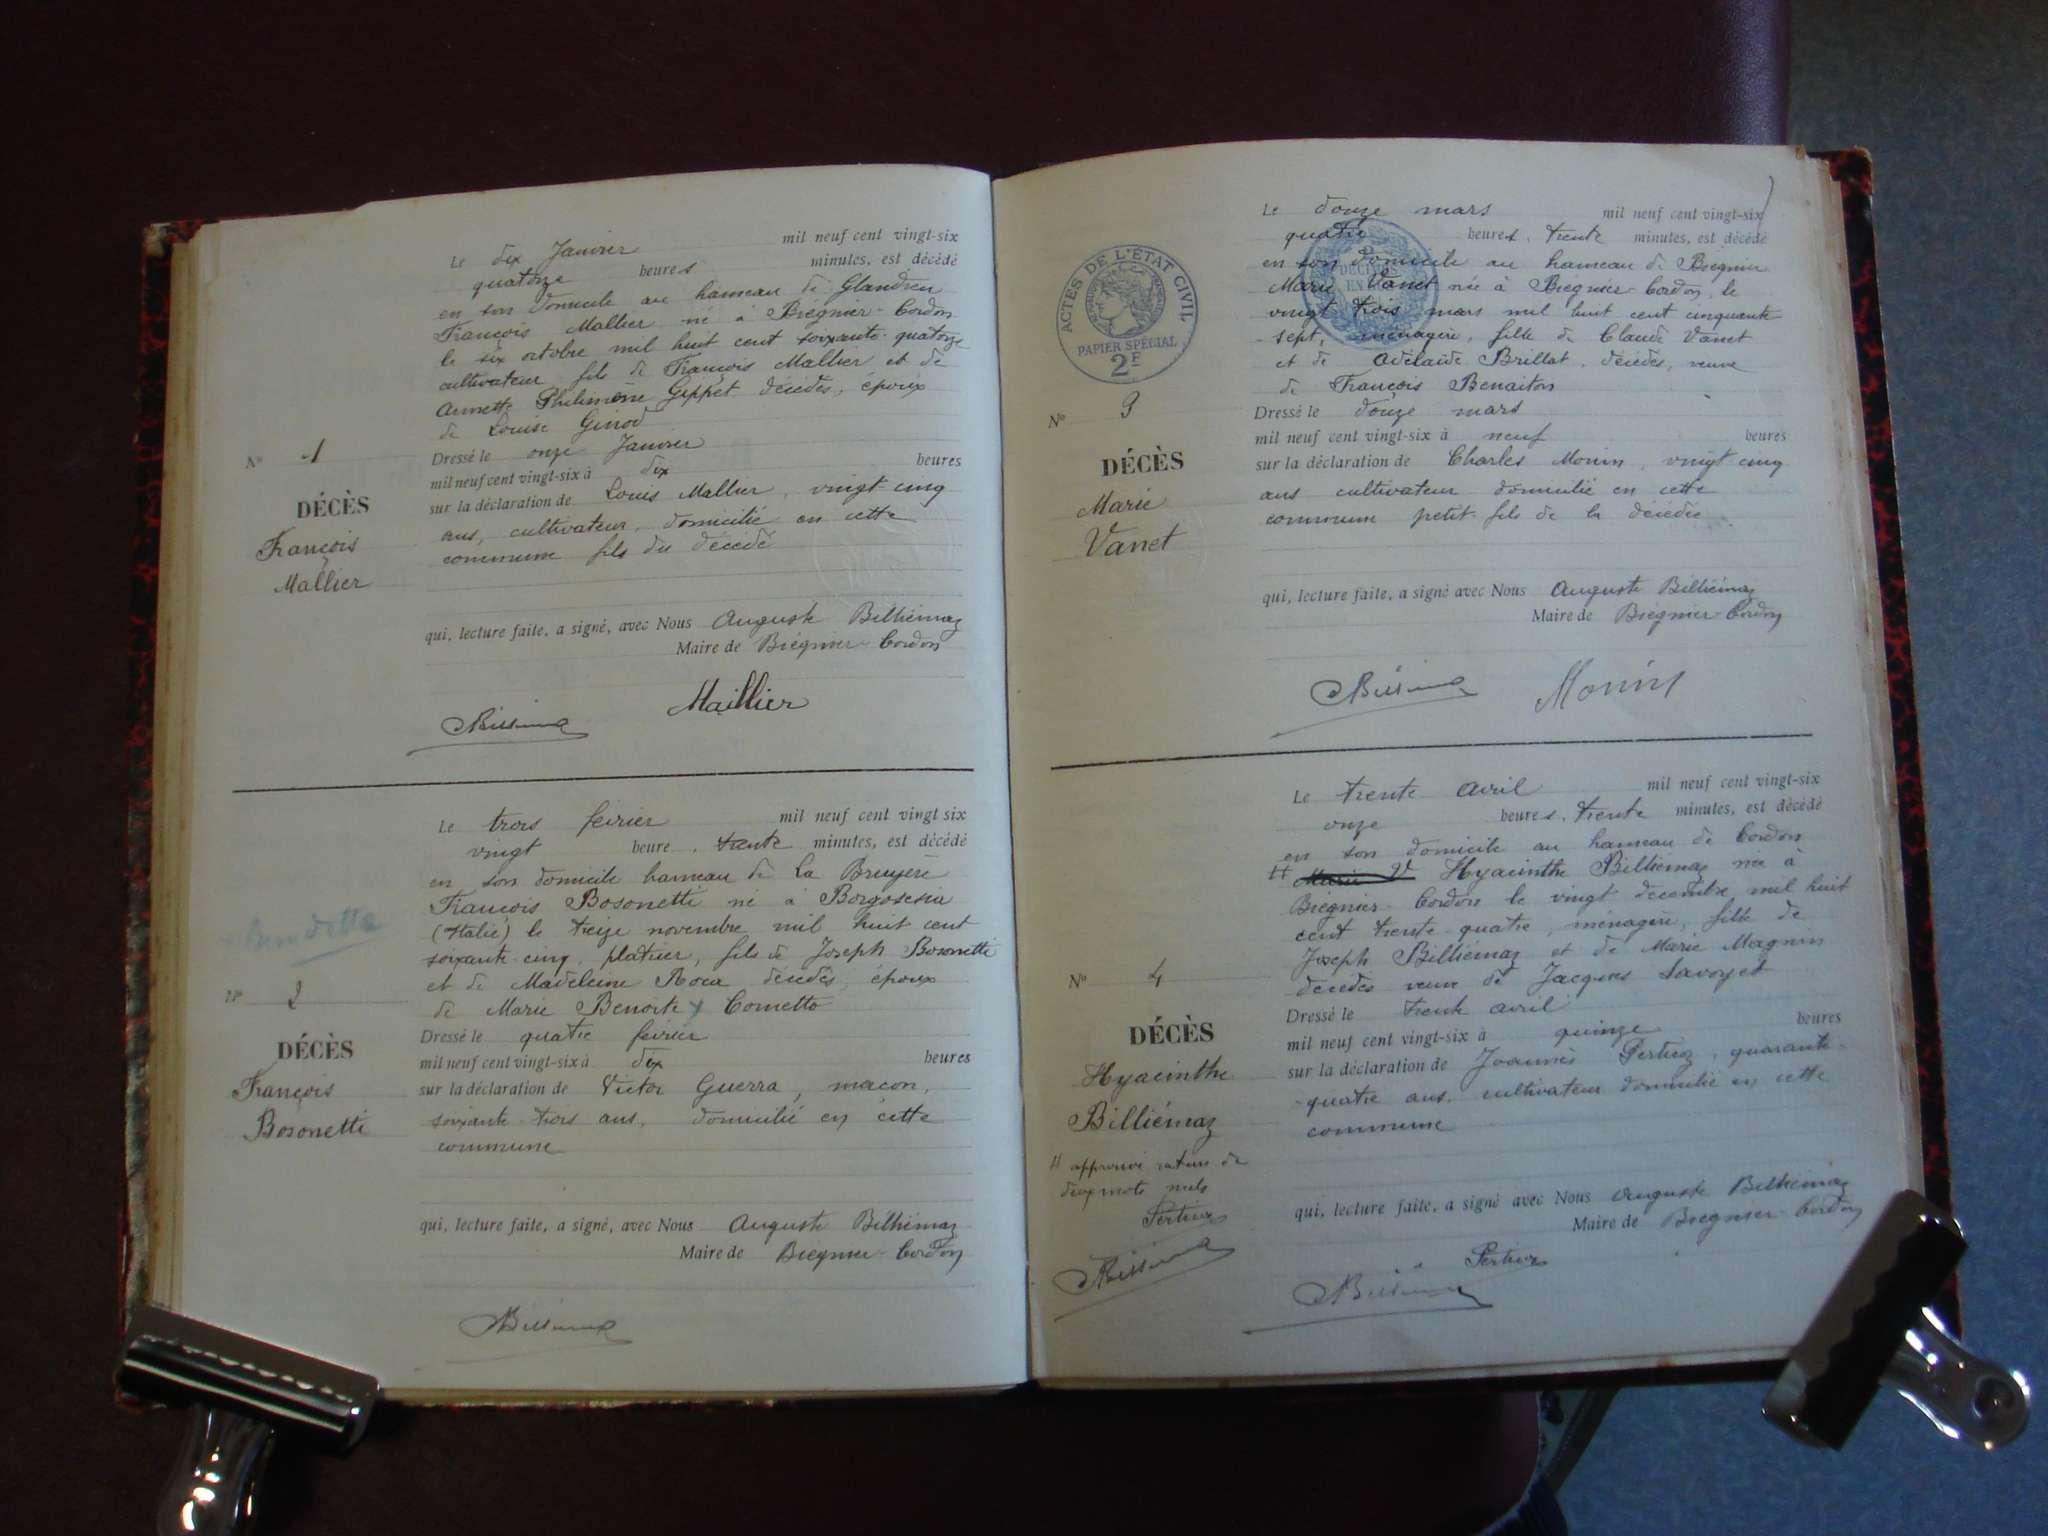 Le dix Janvier mil neuf cent vingt-six
quatorze heures minutes, est décédé
en son domicile au hameau de Glandieu
François Mallier né à Brégnier-Cordon
le six octobre mil huit cent soixante-quatorze
cultivateur fils de François Mallier et de
Annette Philimène Gippet décédés, époux
de Louise Ginod
N° 1
Dressé le onze Janvier
mil neuf cent vingt-six à dix heures
DÉCÈS
François
Mallier
sur la déclaration de Louis Mallier, vingt-cinq
ans, cultivateur, domicilié en cette
commune fils du décédé
qui, lecture faite, a signé, avec Nous Auguste Billiémaz
Maire de Brégnier-Cordon
Maillier
Le trois février mil neuf cent vingt six
vingt heure, trente minutes, est décédé
en son domicile hameau de La Bruyère
François Bosonetti né à Borgosesia
(Italie) le treize novembre mil huit cent
soixante-cinq, platrier, fils de Joseph Bosonetti
et de Madeleine Roca décédés, époux
de Marie Benoite Cometto
N° 2
DÉCÈS
François
Bosonetti
Dressé le quatre février
mil neuf cent vingt-six à dix heures
sur la déclaration de Victor Guerra, macon,
soixante-trois ans, domicilié en cette
commune
qui, lecture faite, a signé, avec Nous Auguste Billiémaz
Maire de Brégnier-Cordon
ACTES DE L'ÉTAT CIVIL
PAPIER SPÉCIAL
2F
Le douze mars mil neuf cent vingt-six
quatre heures, trente minutes, est décédé
en son domicile au hameau de Brégnier
Marie Vanet née à Brégnier-Cordon, le
vingt trois mars mil huit cent cinquante
-sept, ménagère, fille de Claude Vanet
et de Adélaïde Brillat, décédés, veuve
de François Benaiton
N° 3
DÉCÈS
Marie
Vanet
Dressé le douze mars
mil neuf cent vingt-six à neuf heures
sur la déclaration de Charles Monin, vingt-cinq
ans cultivateur domicilié en cette
commune petit-fils de la décédée
qui, lecture faite, a signé avec Nous Auguste Billiémaz
Maire de Brégnier-Cordon
Monin
Le trente avril mil neuf cent vingt-six
onze heures, trente minutes, est décédé
en son domicile au hameau de Cordon
Marie V Hyacinthe Billiémaz née à
Brégnier-Cordon le vingt décembre mil huit
cent trente-quatre, ménagère, fille de
Joseph Billiémaz et de Marie Magnin
décédés veuve de Jacques Savoyet
N° 4
DÉCÈS
Hyacinthe
Billiémaz
approuvé rature de
deux mots nuls
Pertuoz
Dressé le trente avril
mil neuf cent vingt-six à quinze heures
sur la déclaration de Joannès Pertuoz, quarante-
-quatre ans, cultivateur domicilié en cette
commune
qui, lecture faite, a signé avec Nous Auguste Billiémaz
Maire de Brégnier-Cordon
Pertuoz